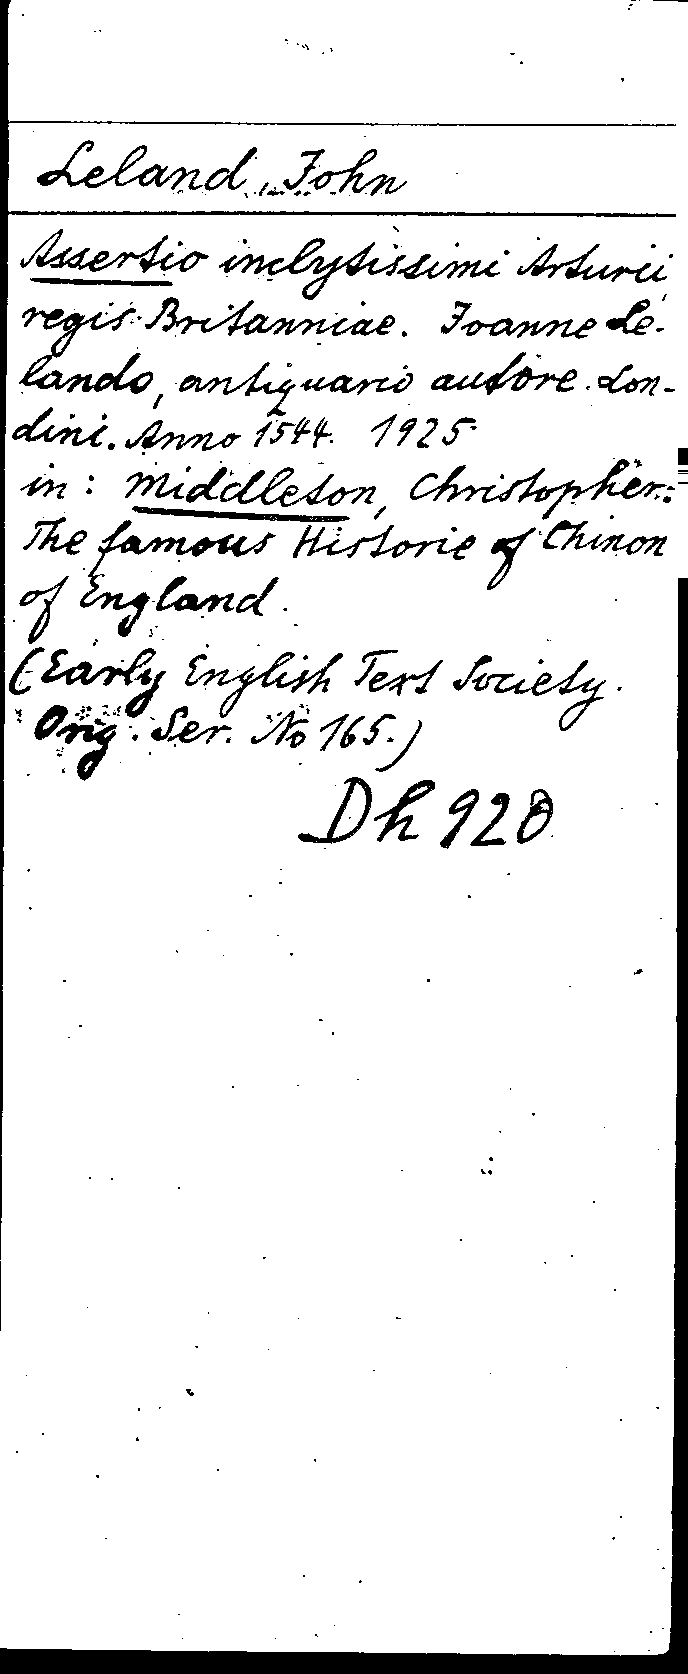 Leland, John
Assertio inclytissimi Arturii
regis Britanniae. Joanne Le-
lando, antiquario autore. Lon-
dini. Anno 1544. 1925
in: Middleton, Christopher:
The famous Historie of Chinon
of England.
(Early English Text Society.
Orig. Ser. No 165.)
Dh 920